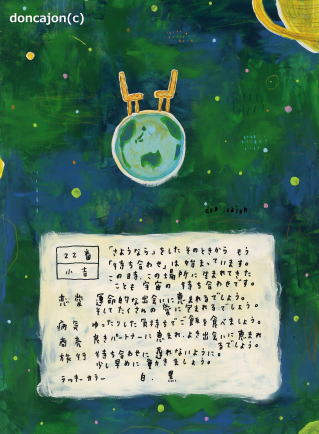 doncajon(c)
don cajon
22番
小吉
「さようなら」をしたそのときから もう
「待ち合わせ」は 始まっています。
この時、この場所に 生まれてきた
ことも 宇宙の 待ち合わせです。
恋愛 運命的な出会いに恵まれるでしょう。
そしてたくさんの 愛に包まれるでしょう。
病気 ゆったりした気持ちでご飯を食べましょう。
商売 良きパートナーに恵まれ、よき出会いに恵まれ
るでしょう。
旅行 待ち合わせに 遅れないように。
少し早めに 動きましょう。
ラッキーカラー 白、黒